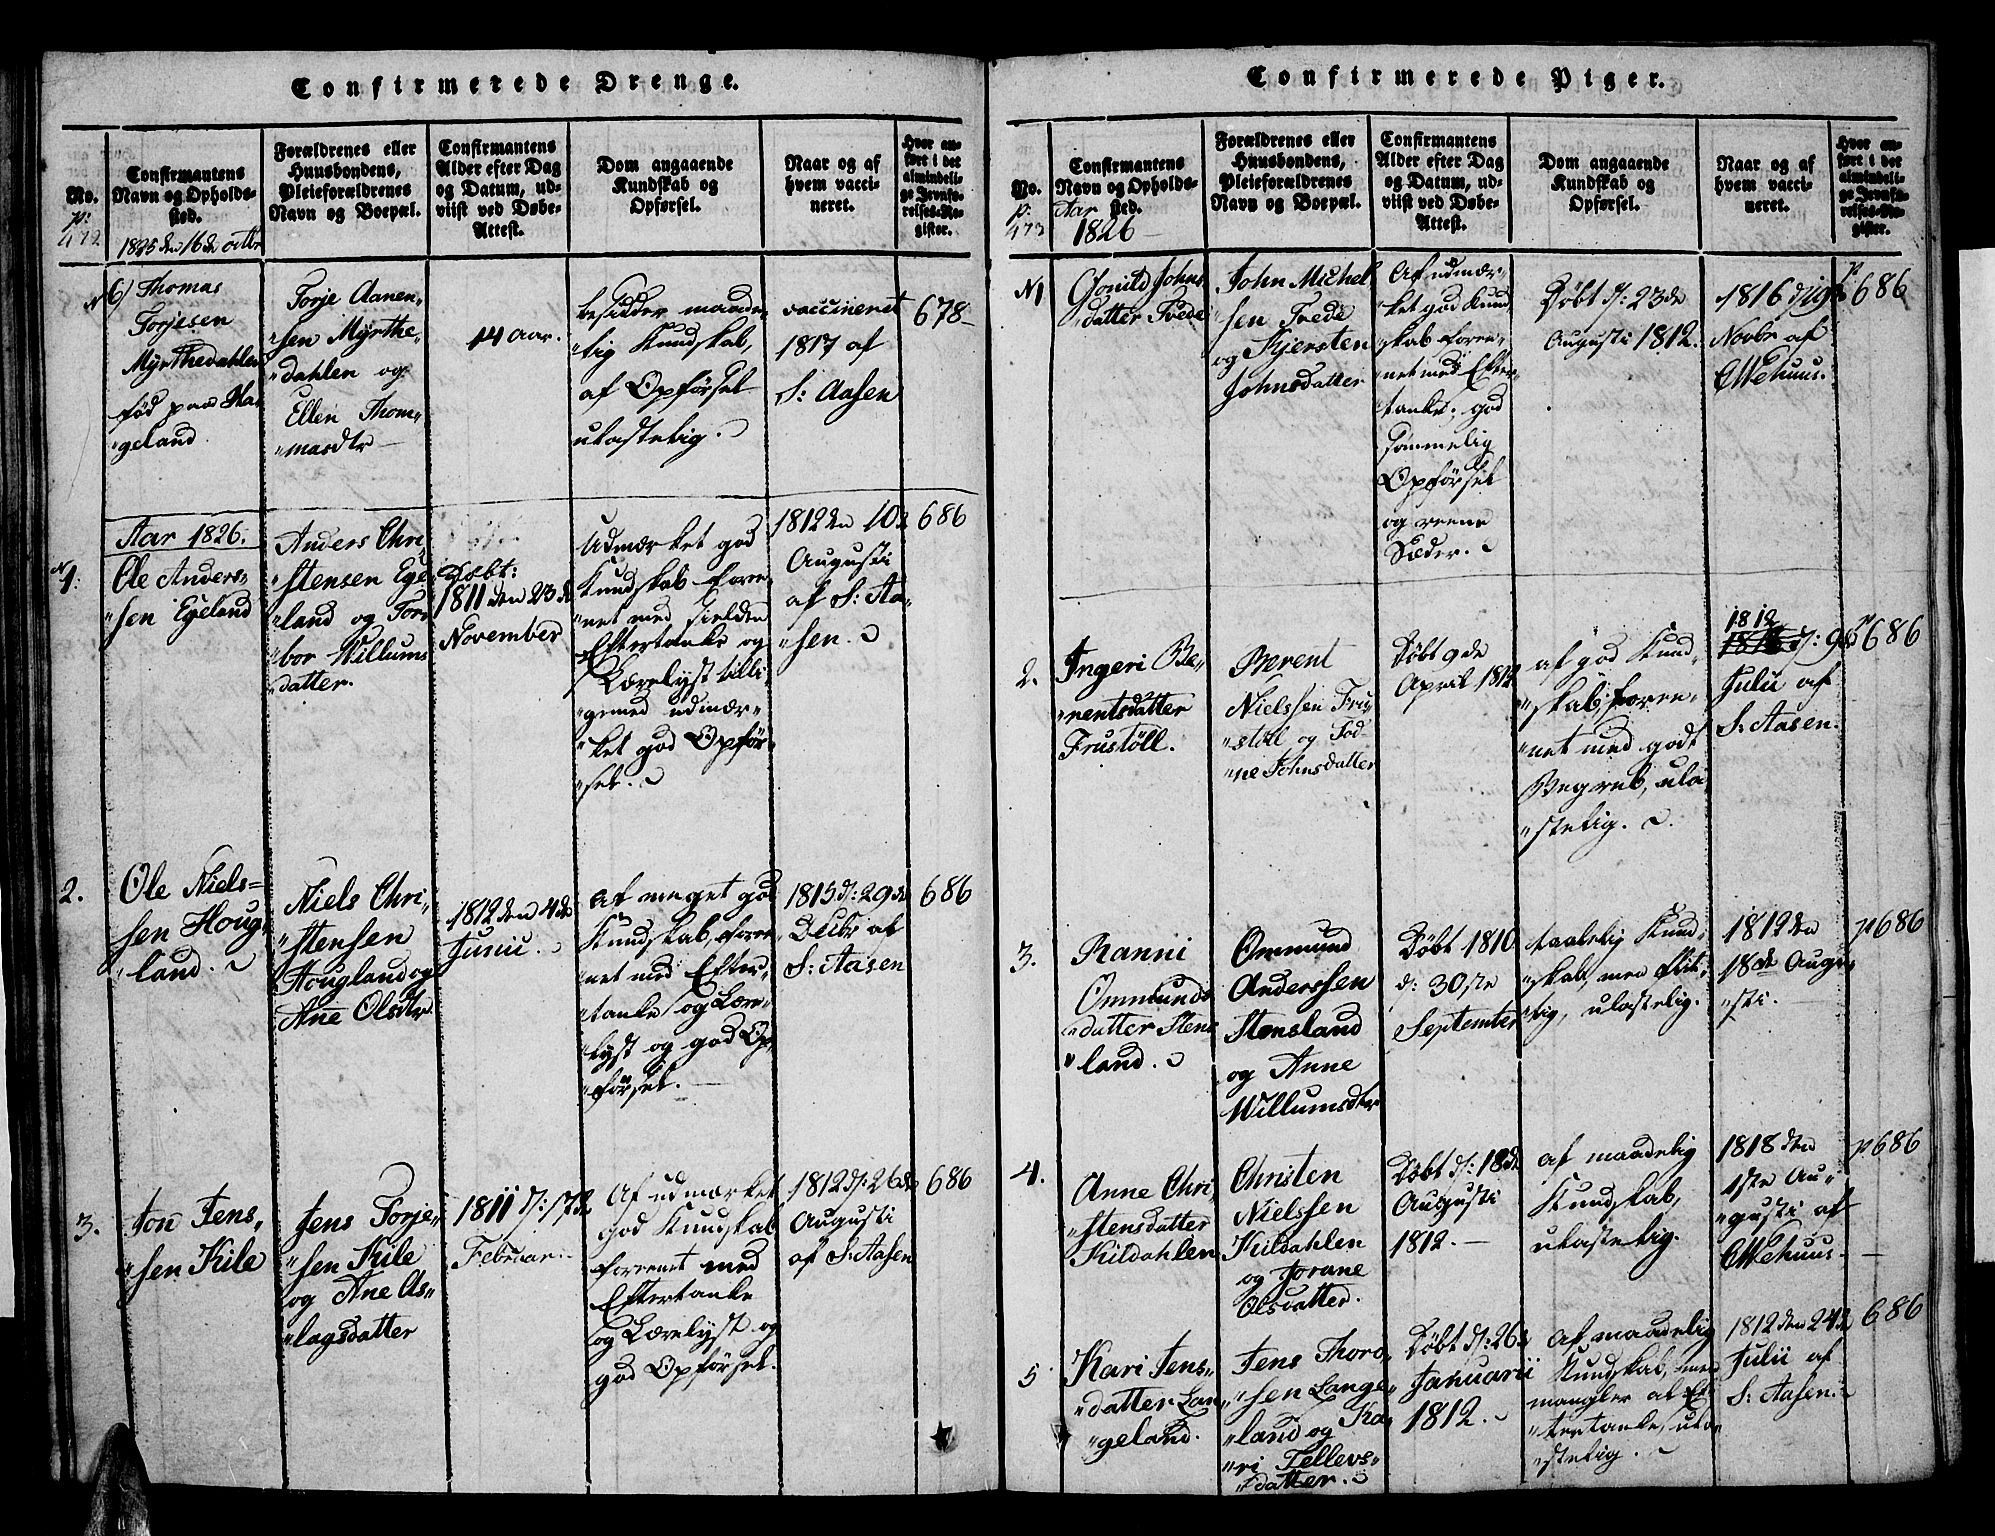 Confirmerede Drenge.
No.
Confirmantens
Navn og Opholds-
sted.
Forældrenes eller
Huusbondens,
Pleieforældrenes
Navn og Boepæl.
Confirmantens
Alder efter Dag
og Datum, ud-
viist ved Døbe-
Attest.
Dom angaaende
Kundskab og
Opførsel.
Naar og af
hvem vacci-
neret.
Hvor an-
ført i det
almindeli-
ge Jevnfø-
relses-Re-
gister.
p:
472
1825 den 16de octbr
N 6)
Thomas
Torjesen
Myrthedahlen
fød paa Ha-
"geland
Torje Aanen-
"sen Myrthe-
"dahlen og
Ellen Thom-
"masdtr
14 aar.
besidder maade-
"lig Kundskab,
af Opførsel
ulastelig.
vaccineret
1817 af
S: Aasen
678
Aar 1826.
N 1.
Ole Anders-
"sen Egeland
Anders Chri-
"stensen Ege-
"land og Tor-
"bor Willums
"datter.
Døbt:
1811 den 23de
November
Udmærket god
Kundskab foree-
"net med sielden
Eftertanke og
Lærelyst tilli-
"gemed udmær-
"ket god Opfør-
"sel.
1812 den 10de
Augusti
af S: Aa-
"sen.
686
2.
Ole Niels-
sen Houg-
"land.
Niels Chri-
"stensen
Hougland og
Ane Olsdtr.
1812 den 4de
Junii.
af meget god
Kundskab, foree-
"net med Efter-
"tanke og Lære-
"lyst og god Op-
"førsel.
1815 d: 29de
Decbr af
S: Aasen
686
3.
Jon Jens-
"sen Kile
Jens Torje-
"sen Kile
og Ane As-
"lagsdatter
1811 d: 17de
Februar.
Af udmærket
god Kundskab
foreenet med
Eftertanke
og Lærelyst og
god Opførsel.
1812 d: 26de
Augusti
af S: Aasen
686
Confirmerede Piger.
No.
Confirmantens
Navn og Opholds-
sted.
Forældrenes eller
Huusbondens,
Pleieforældrenes
Navn og Boepæl.
Confirmantens
Alder efter Dag
og Datum, ud-
viist ved Døbe-
Attest.
Dom angaaende
Kundskab og
Opførsel.
Naar og af
hvem vacci-
neret.
Hvor an-
ført i det
almindeli-
ge Jevnfø-
relses-Re-
gister.
p.
473
Aar
1826
N1
Gonild Johns
"datter Tvede
John Michel
"sen Tvede
og Kjersten
Johnsdatter
Af udmær-
"ket god Kund
"skab foree-
"net med Efter-
"tanke, god
sømmelig
Opførsel
og reene
Sæder.
Døbt d: 23de
Augusti 1812.
1816 d: 19de
Novbr af
Ettehuus.
p 686
2.
Ingeri Be-
"rentsdatter
Frustöll.
Berent
Nielssen Fru-
"stöll og Tod-
"ne Johnsdatter
Døbt 9de
April 1812
af god Kund-
"skab, foree-
"net med godt
Begreb, ula-
"stelig.
1812
d: 9de
Julii af
S: Aasen.
p 686
3.
Ranni
Ommunds
"datter Stens
"land.
Ommund
Anderssen
Stensland
og Anne
Willumsdtr
Døbt 1810
d: 30ste
September
taalelig Kund-
"skab, men flit-
"tig, ulastelig.
1812 den
18de Augu-
"sti.
p 686
4.
Anne Chri-
"stensdatter
Kildahlen
Christen
Nielssen
Kildahlen
og Jorane
Olsdatter.
Døbt d: 18de
Augusti
1812.
af maadelig
Kundskab,
ulastelig.
1818 den
1ste Au-
"gusti af
Ettehuus.
p 686
5
Kari Jens-
"datter Lan-
"geland.
Jens Thord-
"sen Lange-
"land og Ka-
"ri Tellevs-
"datter.
Døbt d: 26de
Januarii
1812.
af maadelig
Kundskab, men
mangler al Ef-
"tertanke, ula-
"stelig.
1812 den 24de
Julii af
S: Aasen.
686